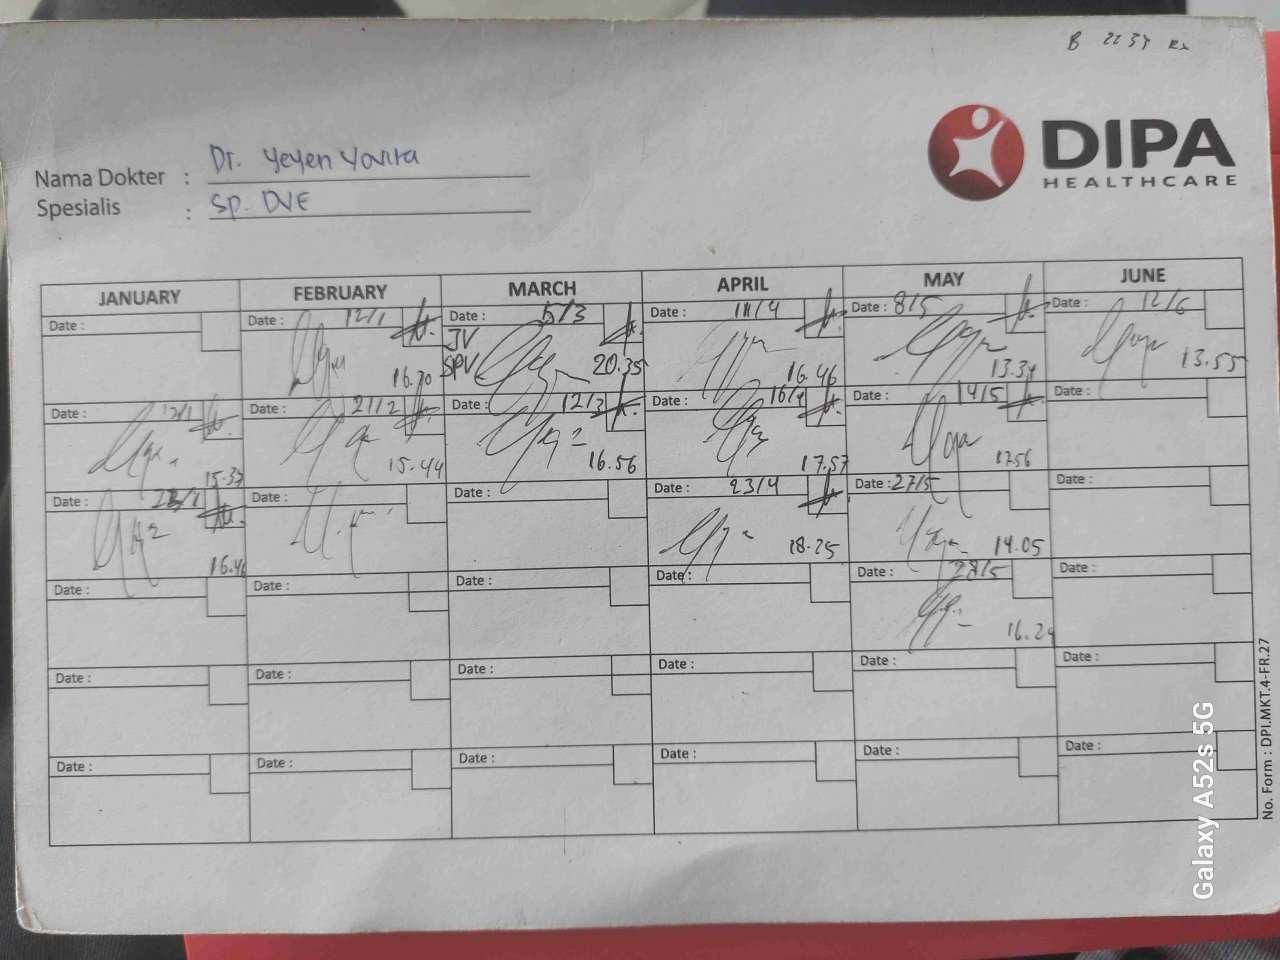 B 2237
DIPA
HEALTHCARE
Nama Dokter : Dr. Yeyen Yovita
Spesialis : Sp. DVE
JANUARY FEBRUARY MARCH APRIL MAY JUNE
Date : Date : 12/1 Date : 5/3 Date : 11/4 Date : 8/5 Date : 12/6
JV
SPV
16.30 20.35 16.46 13.34 13.55
Date : 12/1 Date : 21/2 Date : 12/3 Date : 16/4 Date : 14/5 Date :
15.37 15.44 16.56 17.57 17.56
Date : Date : Date : Date : 23/4 Date : 27/5 Date :
16.46 18.25 14.05
Date : Date : Date : Date : Date : 28/5 Date :
16.24
Date : Date : Date : Date : Date : Date :
Date : Date : Date : Date : Date : Date :
No. Form : DPI.MKT.4-FR.27
Galaxy A52s 5G